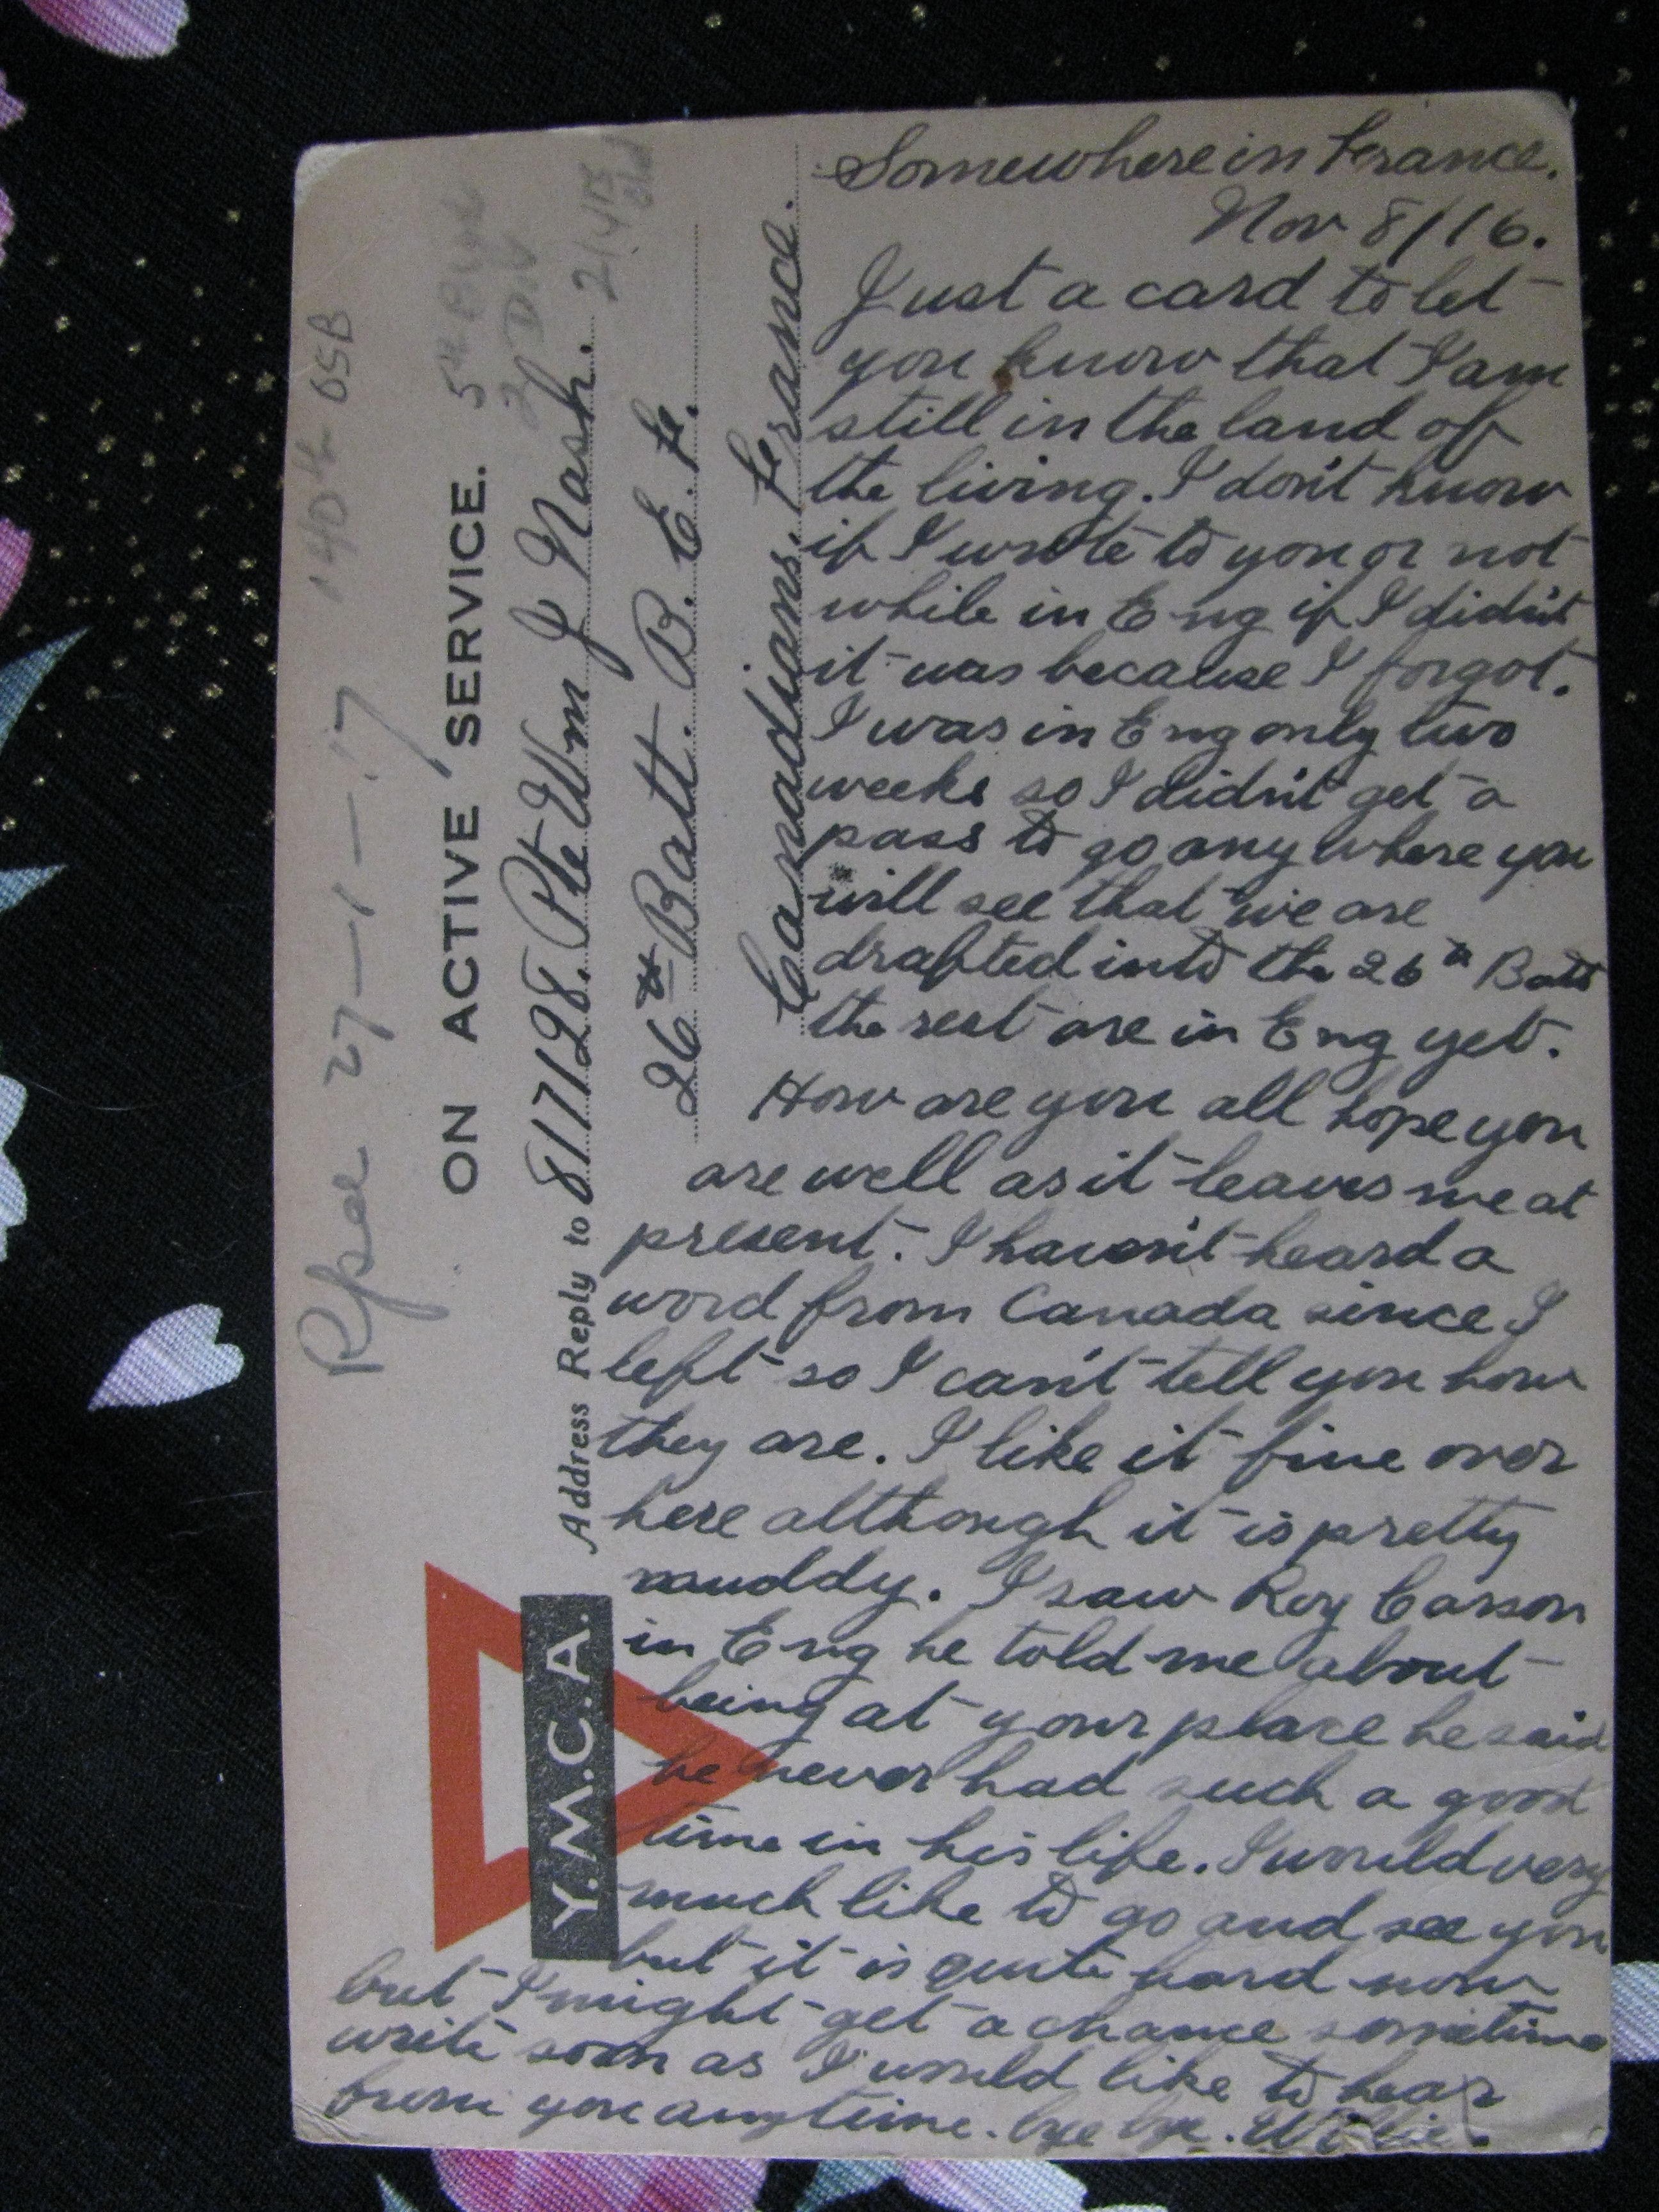 Rfse 27–1–17 140th OSB
ON ACTIVE SERVICE.
5th
2 Div
Address Reply to 817128. Pte Wm J Nash.
21 yrs
old
26th Batt. B. E. F.
Canadians, France.
Y.M.C.A.
Somewhere in France.
Nov 8/16.
Just a card to let
you know that I am
still in the land of
the living. I don't know
if I wrote to you or not
while in Eng if I didn't
it was because I forgot.
I was in Eng only two
weeks so I didn't get a
pass to go any where you
will see that we are
drafted into the 26th Batt
the rest are in Eng yet.
How are you all hope you
are well as it leaves me at
present. I haven't heard a
word from Canada since I
left so I can't tell you how
they are. I like it fine over
here although it is pretty
muddy. I saw Roy Carson
in Eng he told me about
being at your place he said
he never had such a good
time in his life. I would very
much like to go and see you
but it is quite hard now
but I might get a chance sometime
write soon as I would like to hear
from you anytime. bye bye. Willie.